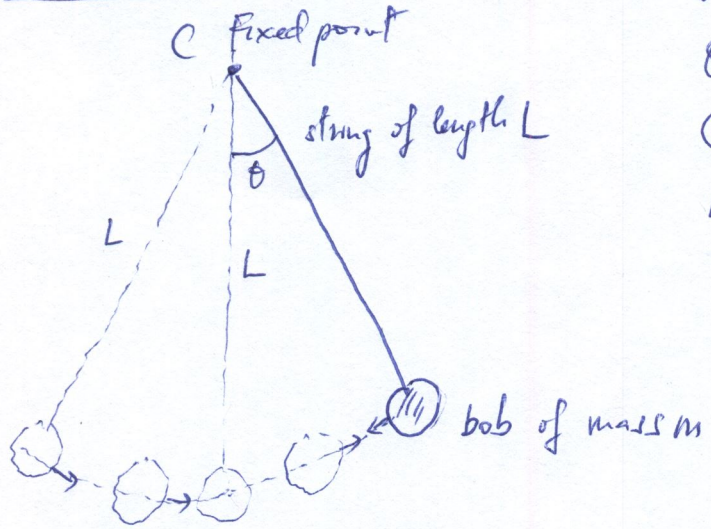 C Fixed point
string of length L
θ
L
L
bob of mass m